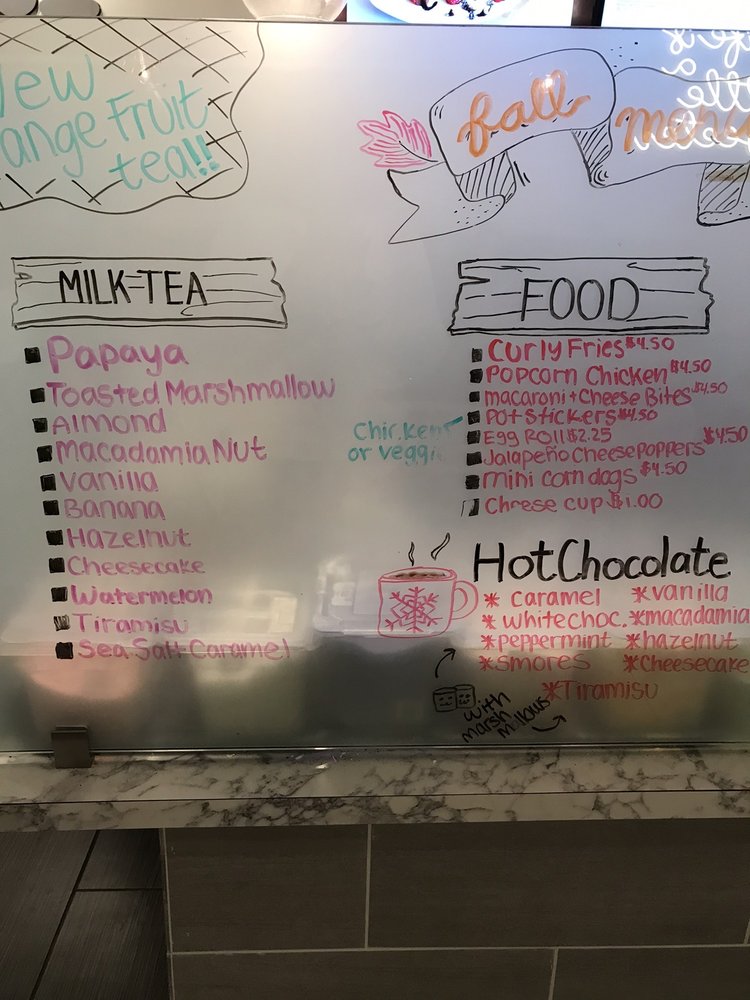 New
ange Fruit
tea!!
fall
menu
MILK-TEA
Papaya
Toasted Marshmallow
Almond
Macadamia Nut
Vanilla
Banana
Hazelnut
Cheesecake
Watermelon
Tiramisu
Sea Salt Caramel
FOOD
Curly Fries $4.50
Popcorn Chicken $4.50
macaroni + Cheese Bites $4.50
Potstickers $4.50
Chicken
or veggie
Egg Roll $2.25
Jalapeño Cheese Poppers $4.50
mini corn dogs $4.50
Cheese cup $1.00
Hot Chocolate
* caramel * vanilla
* white choc. * macadamia
* peppermint * hazelnut
* smores * Cheesecake
* Tiramisu
with
marsh
mallows